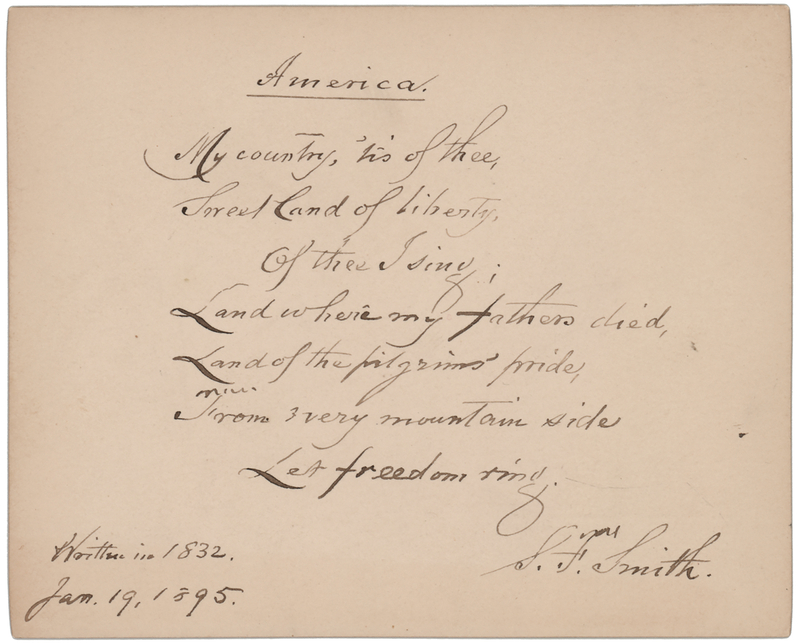 America.
My country, 'tis of thee,
Sweet land of liberty,
Of thee I sing;
Land where my fathers died,
Land of the pilgrims' pride,
From every mountain side
Let freedom ring.
S. F. Smith.
Written in 1832.
Jan. 19, 1895.